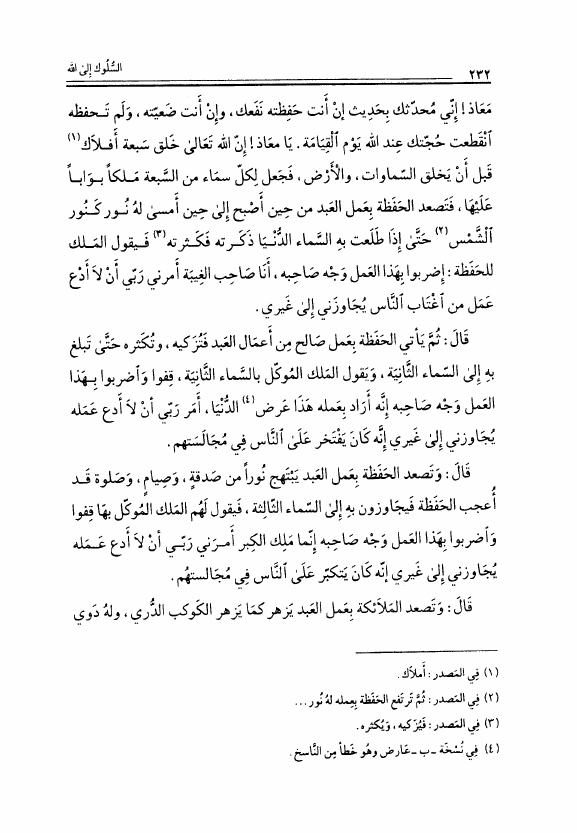 ٢٣٢
السُّلُوك إلىٰ الله
مَعَاذ! إنّي مُحدّثك بِحَديث إنْ أنت حَفِظته نَفَعك، وإنْ أنت ضَعيّته، وَلَم تَـحفظه
ٱنْقَطعت حُجّتك عِند الله يَوْم ٱلْقِيَامَة. يَا معاذ! إنّ الله تَعالىٰ خَلق سَبعة أَفـلاَك(١)
قَبل أنْ يَخلق السّماوات، والأرْض، فَجَعل لِكلّ سماء من السَّبعة مَـلكاً بـوَاباً
عَلَيْهَا، فَتَصعد الحَفَظة بِعَمل العَبد من حِين أَصْبح إلىٰ حِين أَمسىٰ لهُ نُـور كَـنُور
ٱلْشَّمْس(٢) حَتَّىٰ إذَا طَلَعت بهِ السَّماء الدُّنْـيَا ذَكَـرته فَكَـثرته(٣) فَـيقول المَـلك
للحَفَظة: إضربوا بِهَذا العَمل وَجْه صَاحبه، أنَا صَاحب الغِيبة أمرني رَبّي أنْ لاَ أدَع
عَمَل من ٱغْتَاب ٱلنَّاس يُجَاوزَني إلىٰ غَيري.
قَالَ: ثُمَّ يَأتي الحَفَظة بِعَمل صَالح مِن أعمَال العَبد فَتُزكيه، وتُكثره حَتَّىٰ تَبلغ
بهِ إلىٰ السّماء الثَّانِيَة، وَيَقول المَلك المُوكّل بالسَّماء الثَّانِيَة، قِفوا وَٱضربوا بِـهَذا
العمل وَجْه صَاحبه إنَّه أَرَاد بِعَمله هَذَا عَرض(٤) الدُّنْيَا، أمَر رَبّي أنْ لاَ أدع عَمَله
يُجَاوزني إلىٰ غَيري إنَّه كَانَ يَفْتَخر عَلَىٰ ٱلنَّاس فِي مجَالَسَتهم.
قَالَ: وَتَصعد الحَفَظة بِعَمل العَبد يَبْتَهج نُوراً من صَدقةٍ، وَصِيامٍ، وَصَلوة قَـد
أُعجب الحَفَظة فَيجَاوزون بهِ إلىٰ السَّماء الثّالِثة، فَيقول لَهُم المَلك المُوكّل بهَا قِفوا
وَٱضربوا بِهَذا العَمل وَجْه صَاحبه إنّما مَلِك الكِبر أمـرَني رَبّـي أنْ لاَ أدع عَـمَله
يُجَاوزني إلىٰ غَيري إنّه كَانَ يَتكبّر عَلَىٰ ٱلنَّاس فِي مُجَالستهُم.
قَالَ: وَتَصعد المَلاَئكة بِعَمل العَبد يَزهر كمَا يَزهر الكَوكب الدُّري، ولهُ دَوي
(١) فِي المَصدر: أَملاَك.
(٢) فِي المَصدر: ثُمَّ تَرتفع الحَفَظة بِعِمله لهُ نُور...
(٣) فِي المَصدر: فَيُزكيه، وَيُكثره.
(٤) فِي نُسْخَة ـ ب ـ عَارض وهُو خَطأ مِن النَّاسخ.